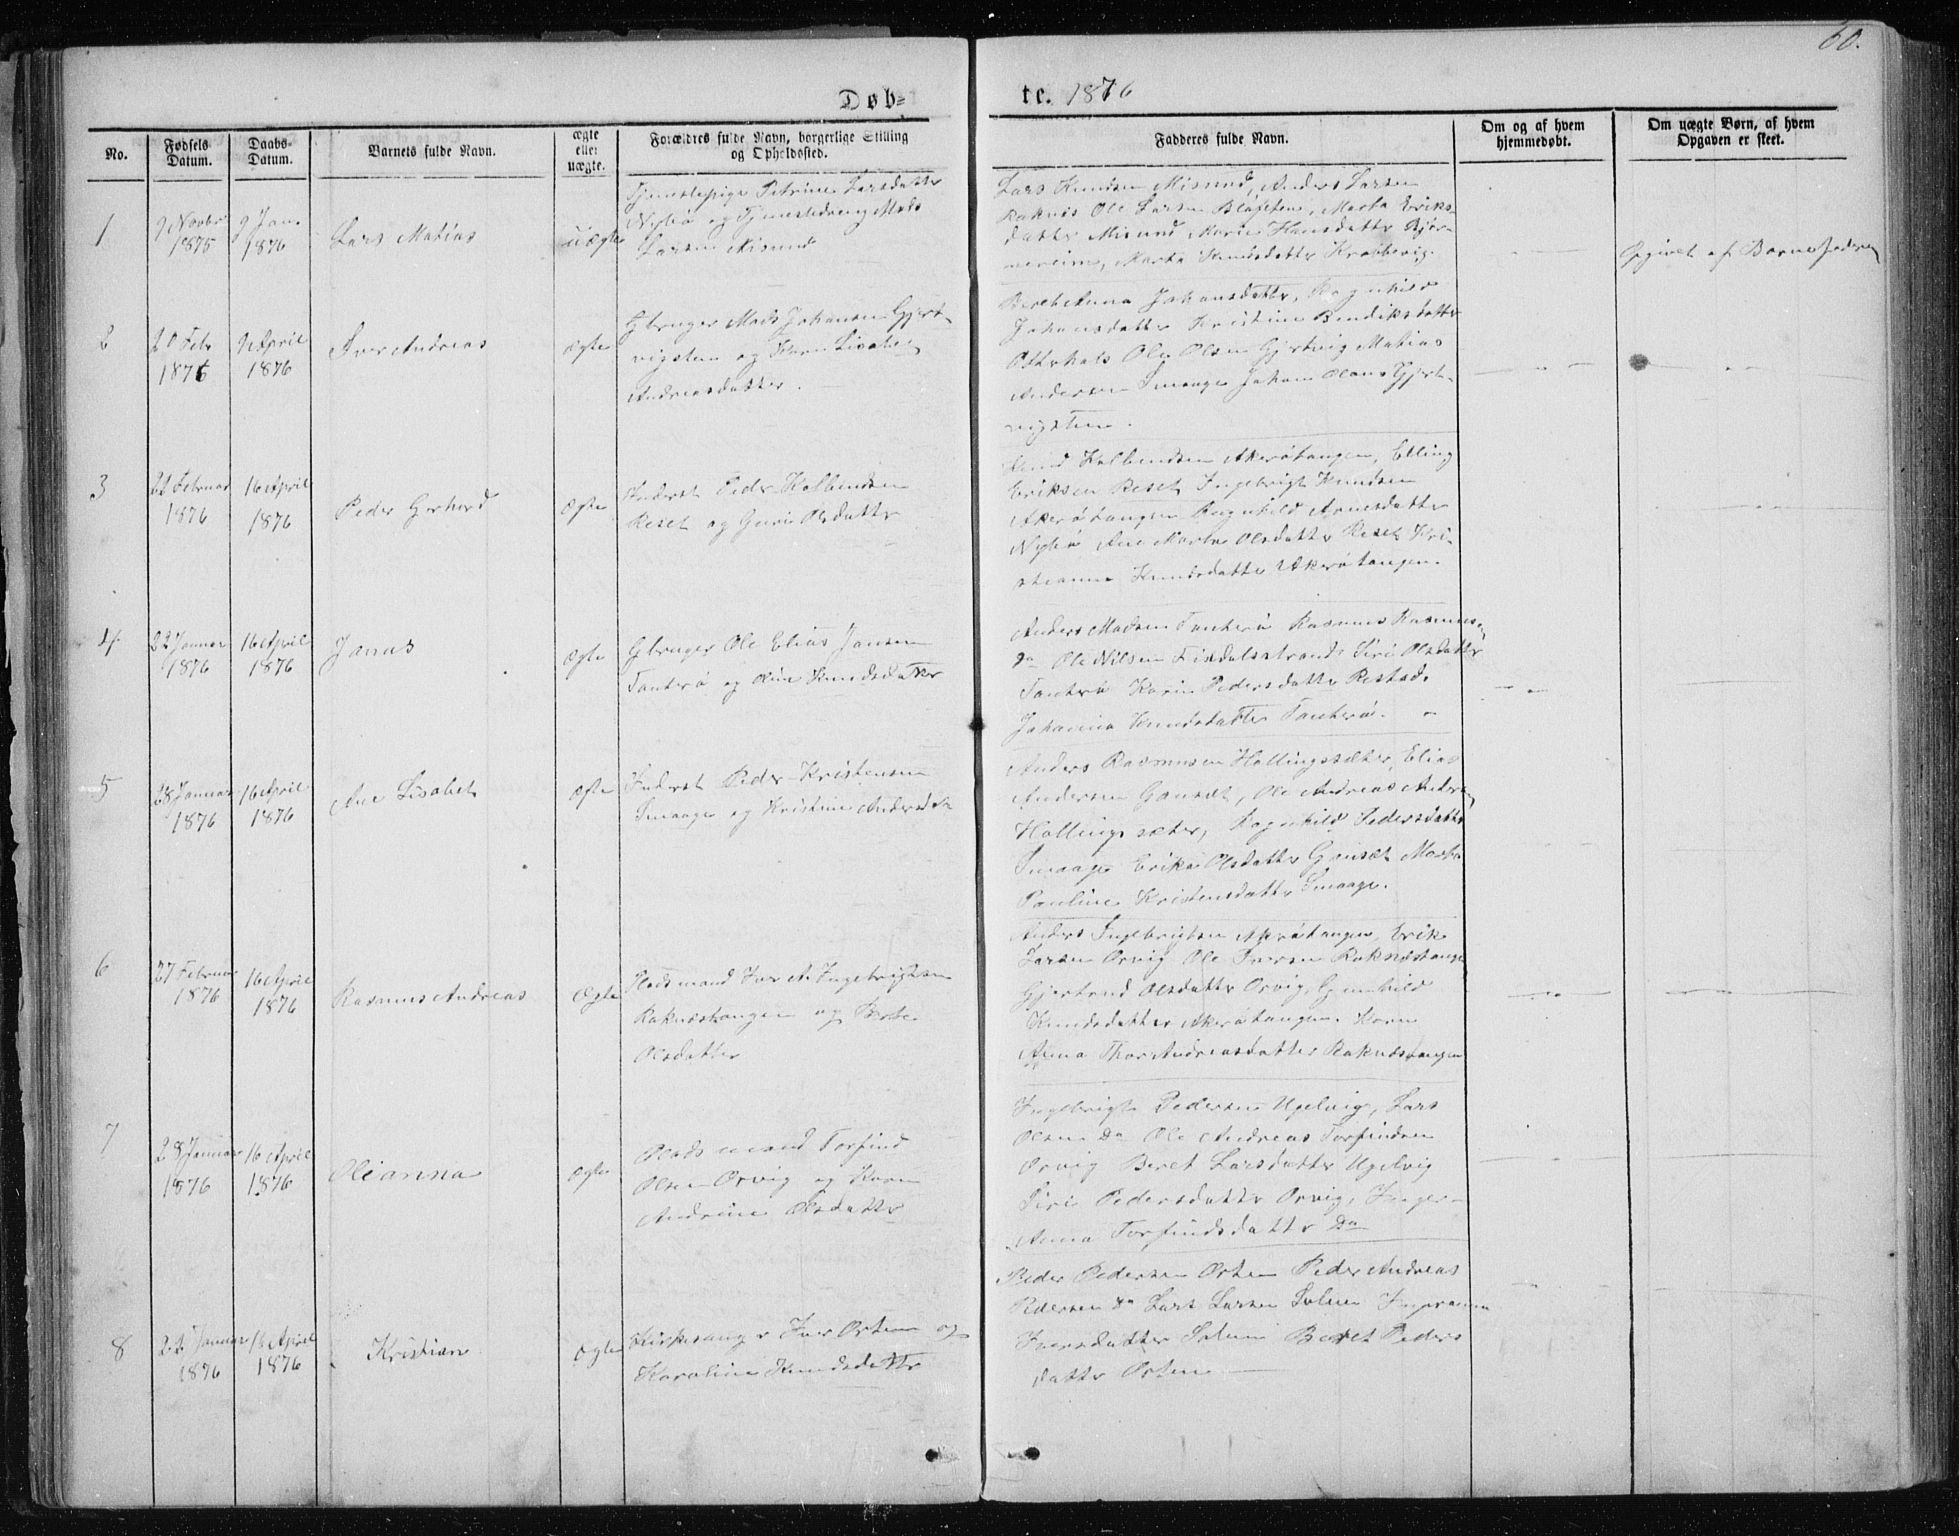 60.
Døb=
te. 1876
No.
Fødsels Datum.
Daabs-Datum.
Barnets fulde Navn.
ægte eller uægte.
Forældres fulde Navn, borgerlige Stilling og Opholdssted.
Fadderes fulde Navn.
Om og af hvem hjemmedøbt.
Om uægte Børn, af hvem Opgaven er skeet.
1
9 Novbr 1875
9 Jan. 1876
Lars Matias
uægte
Tjenestepige Petrine Larsdatter
Nybø og Tjenestedreng Mads
Larsen Misund
Lars Knudsen Misund, Anders Larsen
Raknes Ole Larsen Marta Eriks-
datter Misund Marie Hansdatter Bjør-
nereim, Marta Knudsdatter Krabbevig.
Opgivet af Barnefaderen
2
20 Feb 1876
9 April 1876
Iver Andreas
ægte
Gbruger Mads Johansen Gjert-
vigsten og Karen Lisabet
Andreasdatter.
Beret Anna Johansdatter, Ragnhild
Johansdatter Kristine Bendiksdatter
Otterhals Ole Olsen Gjertvig Matias
Andersen Smaage Johan Olaus Gjert-
vigsten.
3
22 Februar 1876
16 April 1876
Peder Gerhard
ægte
Inderst Peder Kolbendsen
Reset og Guri Olsdatter
Knud Kolbendsen Akerøtangen, Elling
Eriksen Reset Ingebrigt Knudsen
Akerøtangen Ragnhild Arnesdatter
Nybø Ane Marta Olsdatter Reset Kri-
stianna Knudsdatter Akerøtangen.
4
22 Januar 1876
16 April 1876
Jonas
ægte
Gbruger Ole Elias Jansen
Tauterø og Oline Knudsdatter
Anders Madsen Tauterø Rasmus Rasmusen
Do Ole Nilsen Eisdalsstrand Siri Olsdatter
Tauterø Karin Pedersdatter Restad,
Johanna Knudsdatter Tauterø.
5
28 Januar 1876
16 April 1876
Ane Lisabet
ægte
Inderst Peder Kristensen
Smaage og Kristine Andersdtr
Anders Rasmusen Hollingsæter, Elias
Andersen Gansæt, Ole Andreas Andersen
Hollingsæter, Ragnhild Pedersdatter
Smaage Erika Olsdatter Gansæt Marta
Pauline Kristensdatter Smaage.
6
27 Februar 1876
16 April 1876
Rasmus Andreas
ægte
Pladsmand Iver A. Ingebrigtsen
Raknestangen og Berte
Olsdatter
Anders Ingebrigtsen Akerøtangen, Erik
Larsen Orvig Ole Iversen Raknestangen
Gjertrud Olsdatter Orvig, Gunhild
Knudsdatter Akerøtangen. Karen
Anna Thor Andreasdatter Raknestangen
7
28 Januar 1876
16 April 1876
Olianna
ægte
Pladsmand Torfind
Olsen Orvig og Karen
Andrine Olsdatter
Ingebrigt Pedersen Ugelvig, Lars
Olsen Do Ole Andreas Torfindsen
Orvig Beret Larsdatter Ugelvig
Siri Pedersdatter Orvig, Inger-
Anna Torfindsdatter Do
8
22 Januar 1876
16 April 1876
Kristian
ægte
Kirkesanger Iver Orten og
Karoline Knudsdatter
Peder Pedersen Orten Peder Andreas
Pedersen Do Lars Larsen Solem
Iversdatter Solem Beret Peders
datter Orten